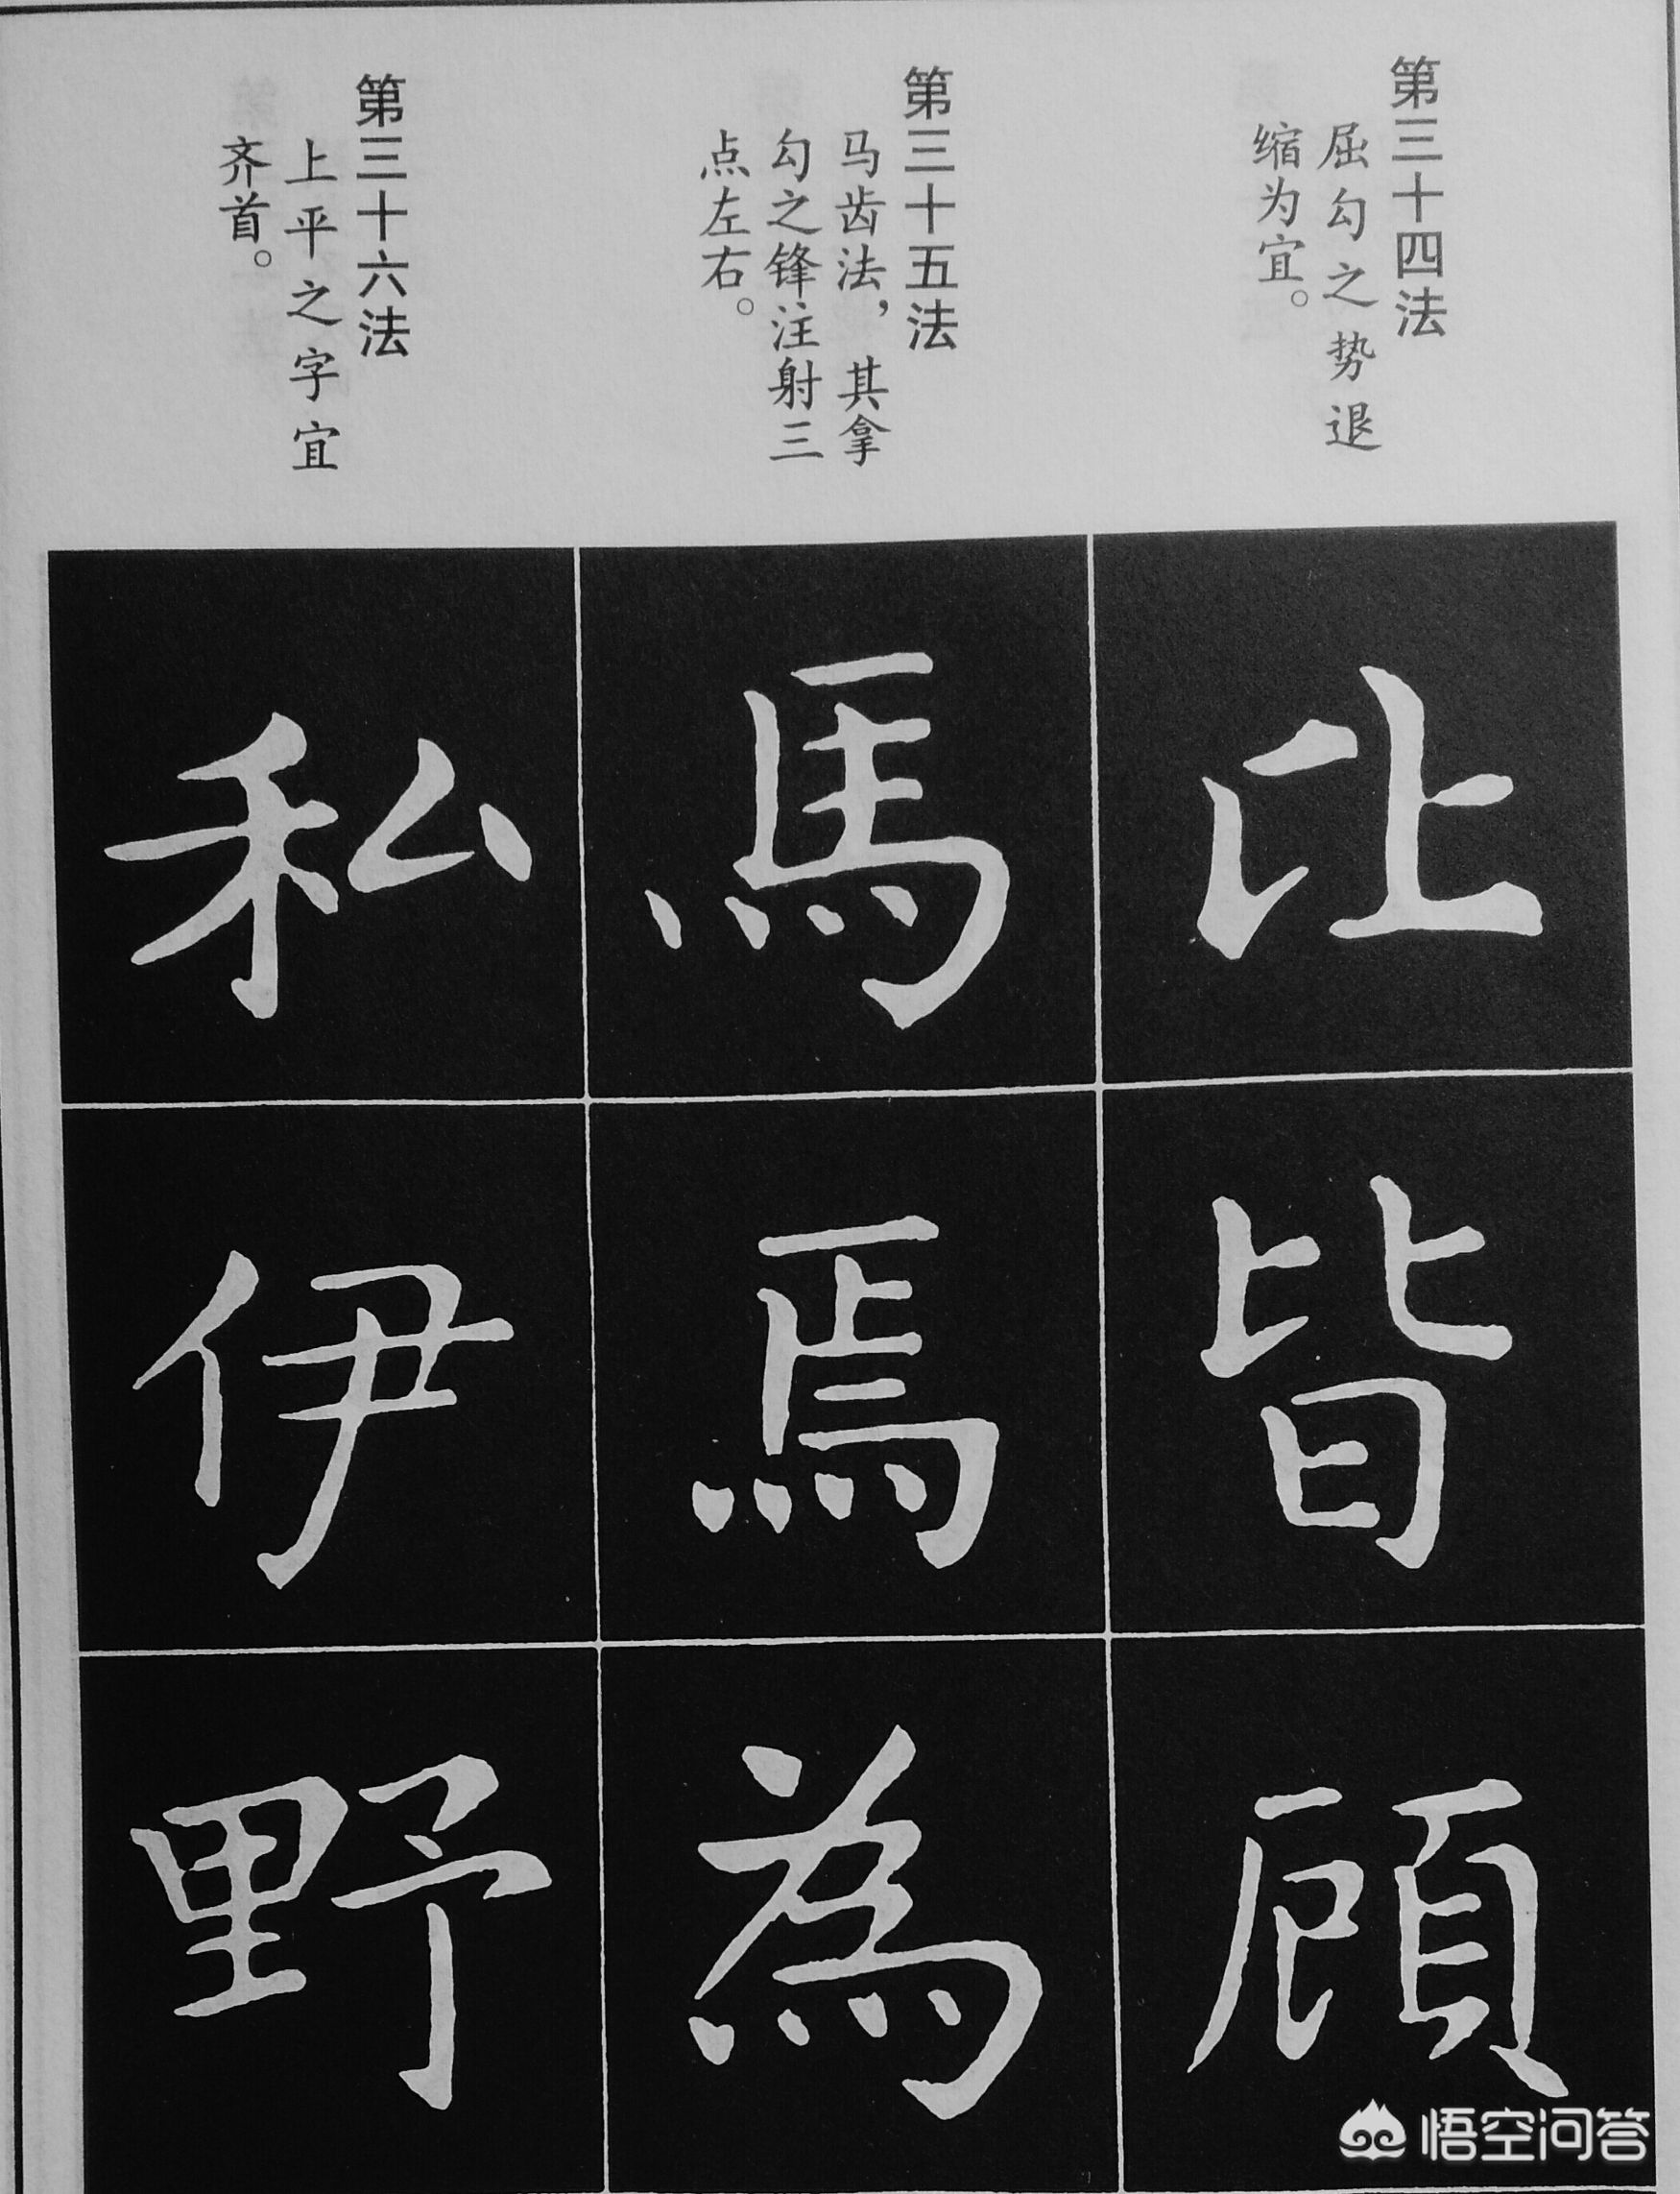 第三十四法
屈勾之势退
缩为宜。
第三十五法
马齿法，其拿
勾之锋注射三
点左右。
第三十六法
上平之字宜
齐首。
比皆頋
馬焉為
私伊野
悟空问答